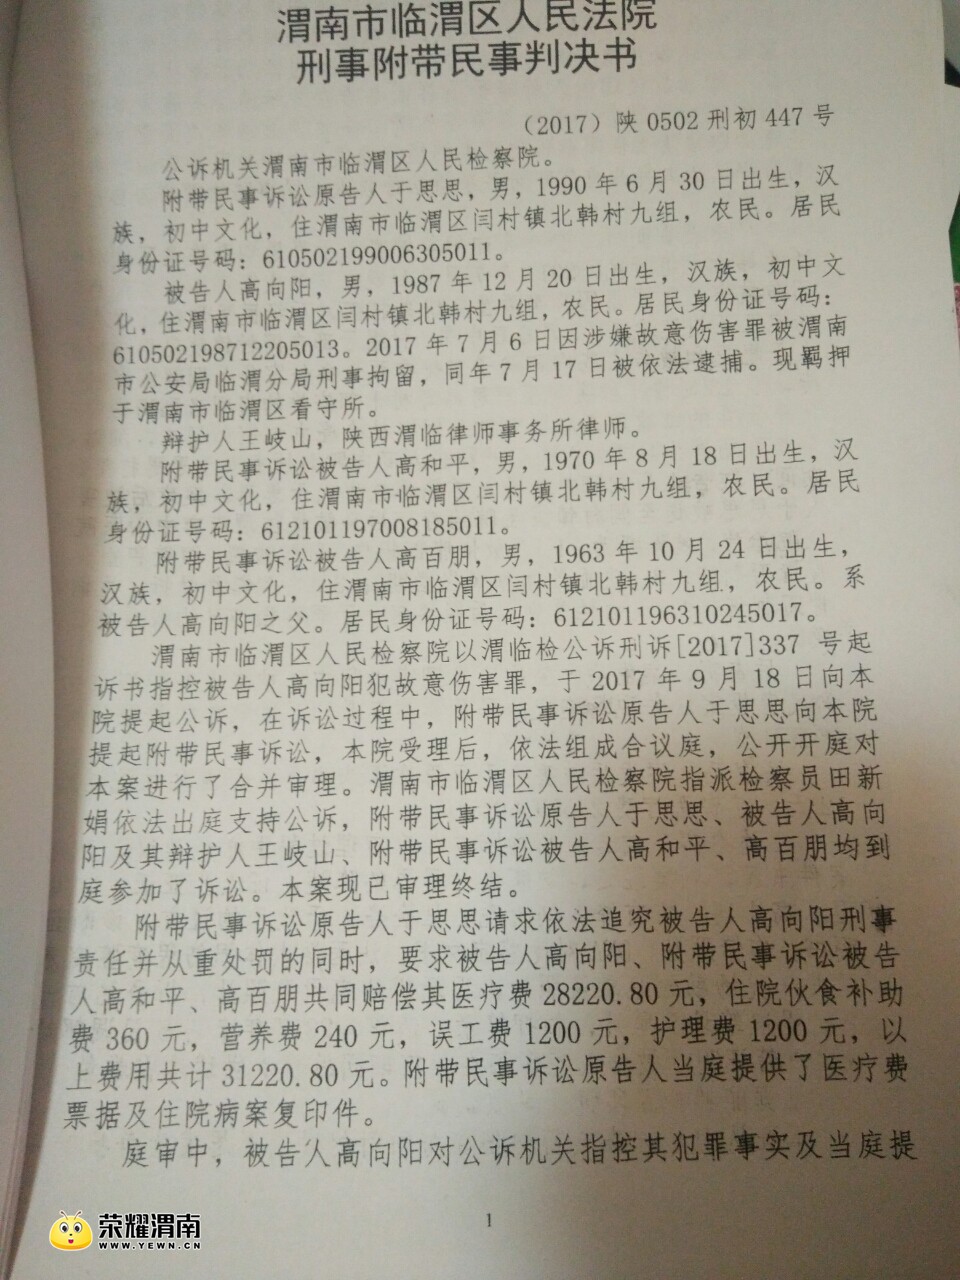 渭南市临渭区人民法院
刑事附带民事判决书
（2017）陕 0502 刑初 447 号
公诉机关渭南市临渭区人民检察院。
附带民事诉讼原告人于思思，男，1990 年 6 月 30 日出生，汉
族，初中文化，住渭南市临渭区闫村镇北韩村九组，农民。居民
身份证号码：610502199006305011。
被告人高向阳，男，1987 年 12 月 20 日出生，汉族，初中文
化，住渭南市临渭区闫村镇北韩村九组，农民。居民身份证号码：
610502198712205013。2017 年 7 月 6 日因涉嫌故意伤害罪被渭南
市公安局临渭分局刑事拘留，同年 7 月 17 日被依法逮捕。现羁押
于渭南市临渭区看守所。
辩护人王岐山，陕西渭临律师事务所律师。
附带民事诉讼被告人高和平，男，1970 年 8 月 18 日出生，汉
族，初中文化，住渭南市临渭区闫村镇北韩村九组，农民。居民
身份证号码：612101197008185011。
附带民事诉讼被告人高百朋，男，1963 年 10 月 24 日出生，
汉族，初中文化，住渭南市临渭区闫村镇北韩村九组，农民。系
被告人高向阳之父。居民身份证号码：612101196310245017。
渭南市临渭区人民检察院以渭临检公诉刑诉[2017]337 号起
诉书指控被告人高向阳犯故意伤害罪，于 2017 年 9 月 18 日向本
院提起公诉，在诉讼过程中，附带民事诉讼原告人于思思向本院
提起附带民事诉讼，本院受理后，依法组成合议庭，公开开庭对
本案进行了合并审理。渭南市临渭区人民检察院指派检察员田新
娟依法出庭支持公诉，附带民事诉讼原告人于思思、被告人高向
阳及其辩护人王岐山、附带民事诉讼被告人高和平、高百朋均到
庭参加了诉讼。本案现已审理终结。
附带民事诉讼原告人于思思请求依法追究被告人高向阳刑事
责任并从重处罚的同时，要求被告人高向阳、附带民事诉讼被告
人高和平、高百朋共同赔偿其医疗费 28220.80 元，住院伙食补助
费 360 元，营养费 240 元，误工费 1200 元，护理费 1200 元，以
上费用共计 31220.80 元。附带民事诉讼原告人当庭提供了医疗费
票据及住院病案复印件。
庭审中，被告人高向阳对公诉机关指控其犯罪事实及当庭提
1
荣耀渭南
WWW.YEWN.CN